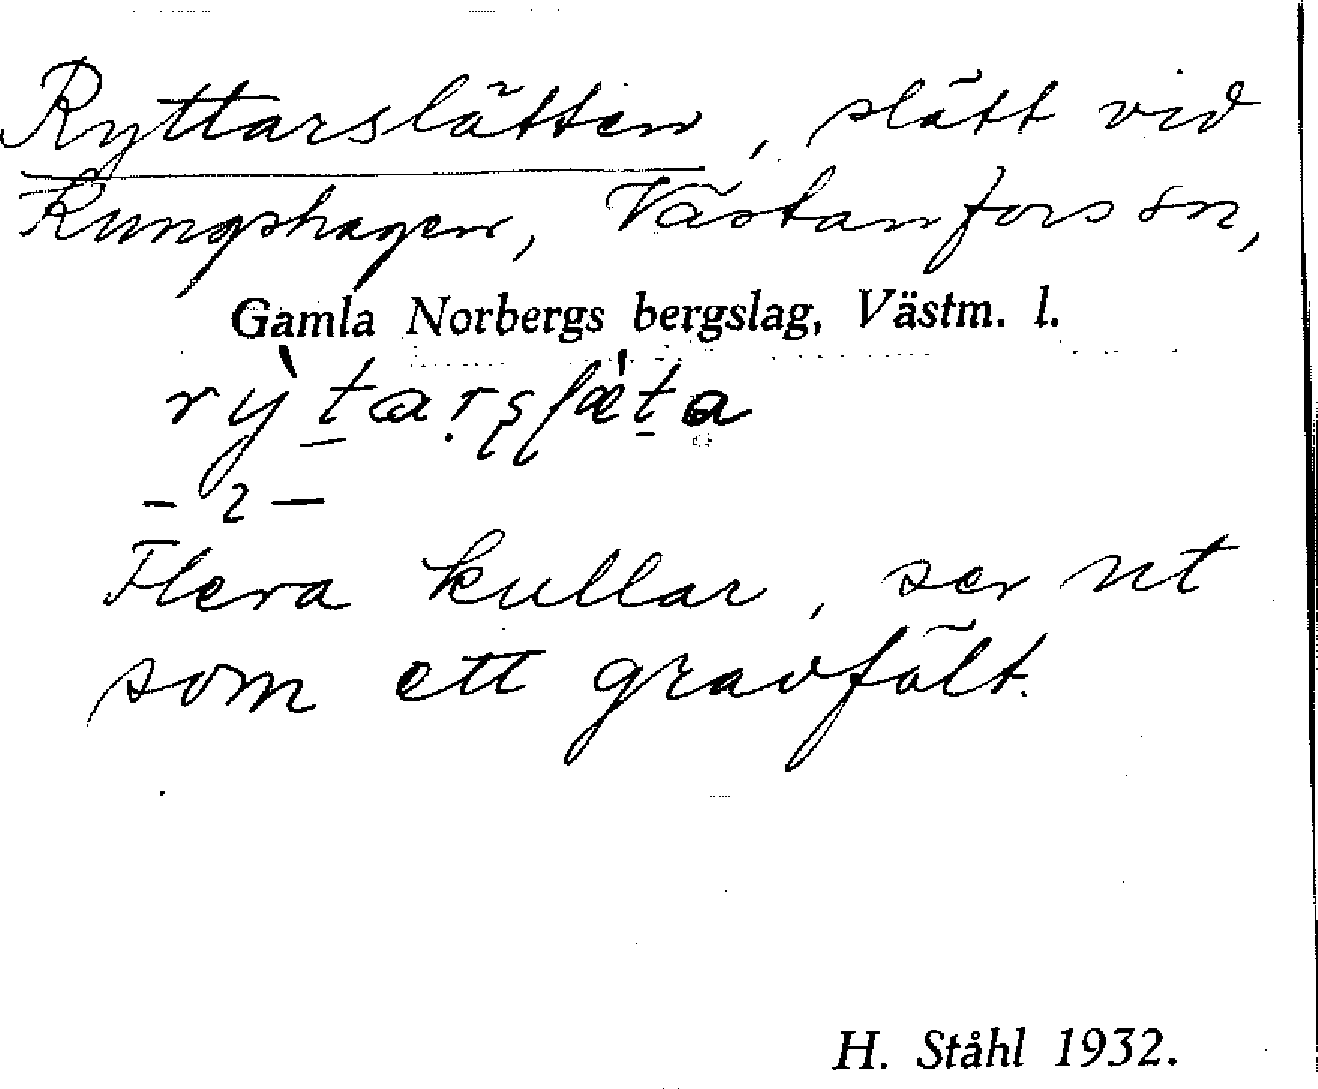 Ryttarslätten, slätt vid
Kungshagen, Västanfors sn,
Gamla Norbergs bergslag, Västm. l.
rỳtarsläta
– 2 –
Flera kullar, ser ut
som ett gravfält.
H. Ståhl 1932.